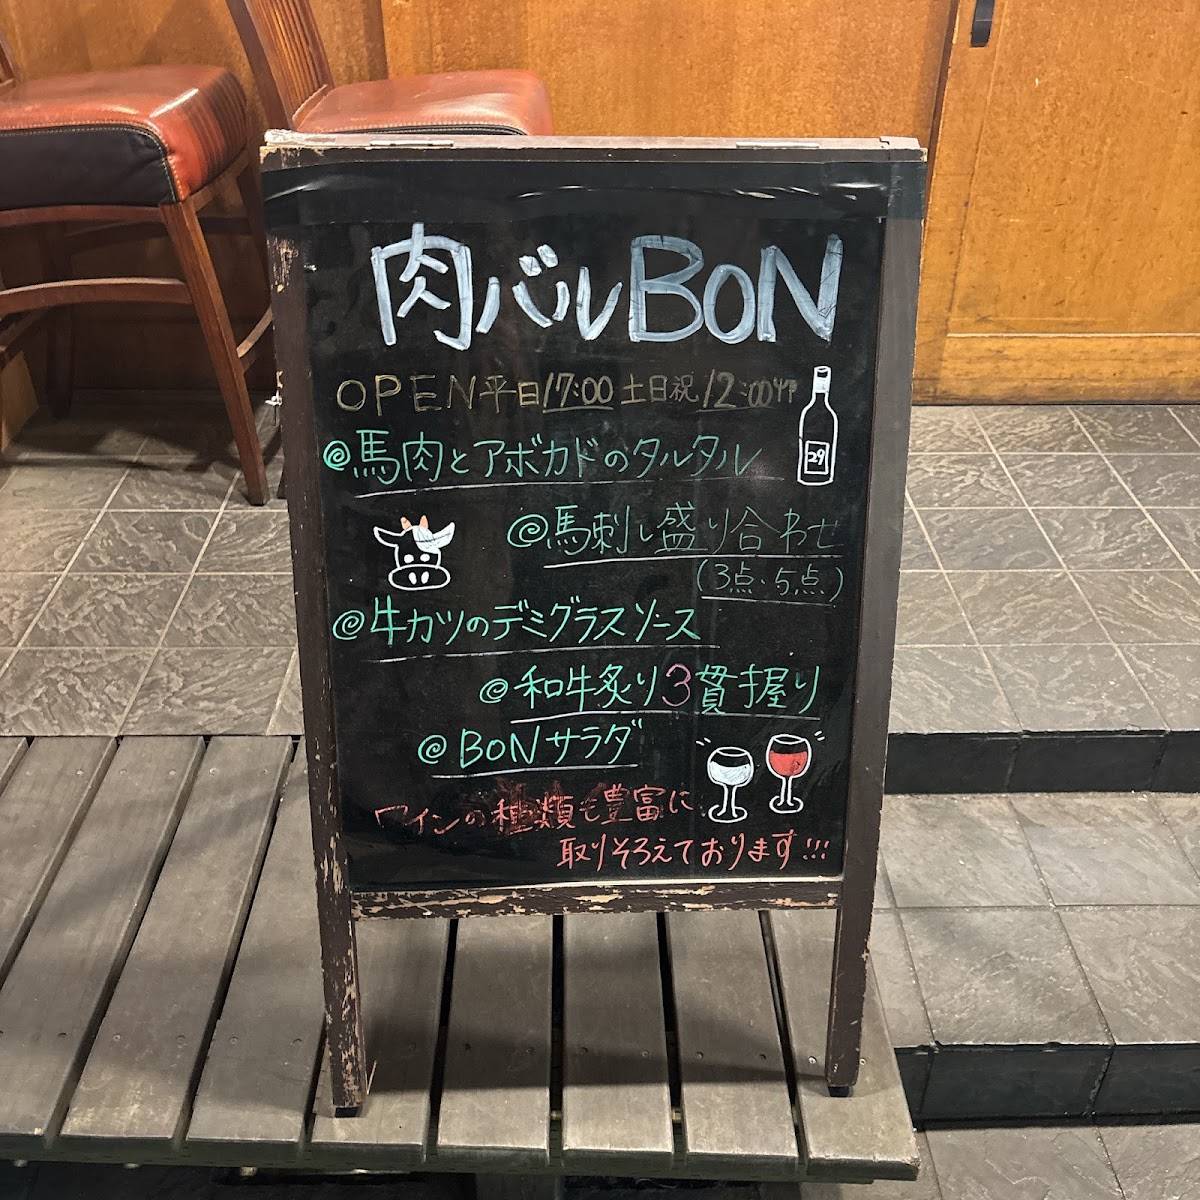 肉バルBON
OPEN平日17:00 土日祝12:00
29
@馬肉とアボカドのタルタル
@馬刺し盛り合わせ
(3点・5点)
@牛カツのデミグラスソース
@和牛炙り3貫握り
@BONサラダ
ワインの種類も豊富に
取りそろえております!!!